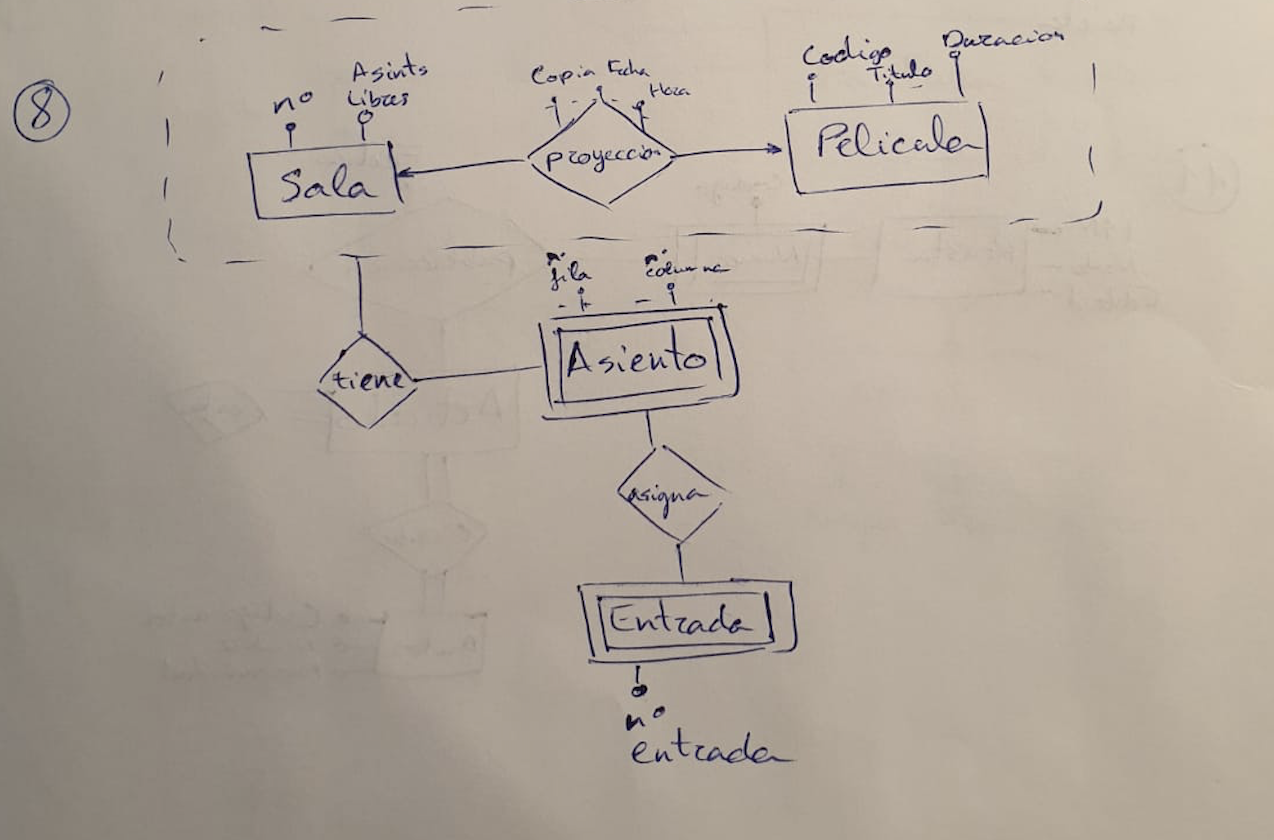 8
nº
Asints
Libres
Sala
Copia
Fecha
Hora
proyeccion
Codigo
Titulo
Duracion
Pelicula
tiene
nº
fila
nº
columna
Asiento
asigna
Entrada
nº
entrada